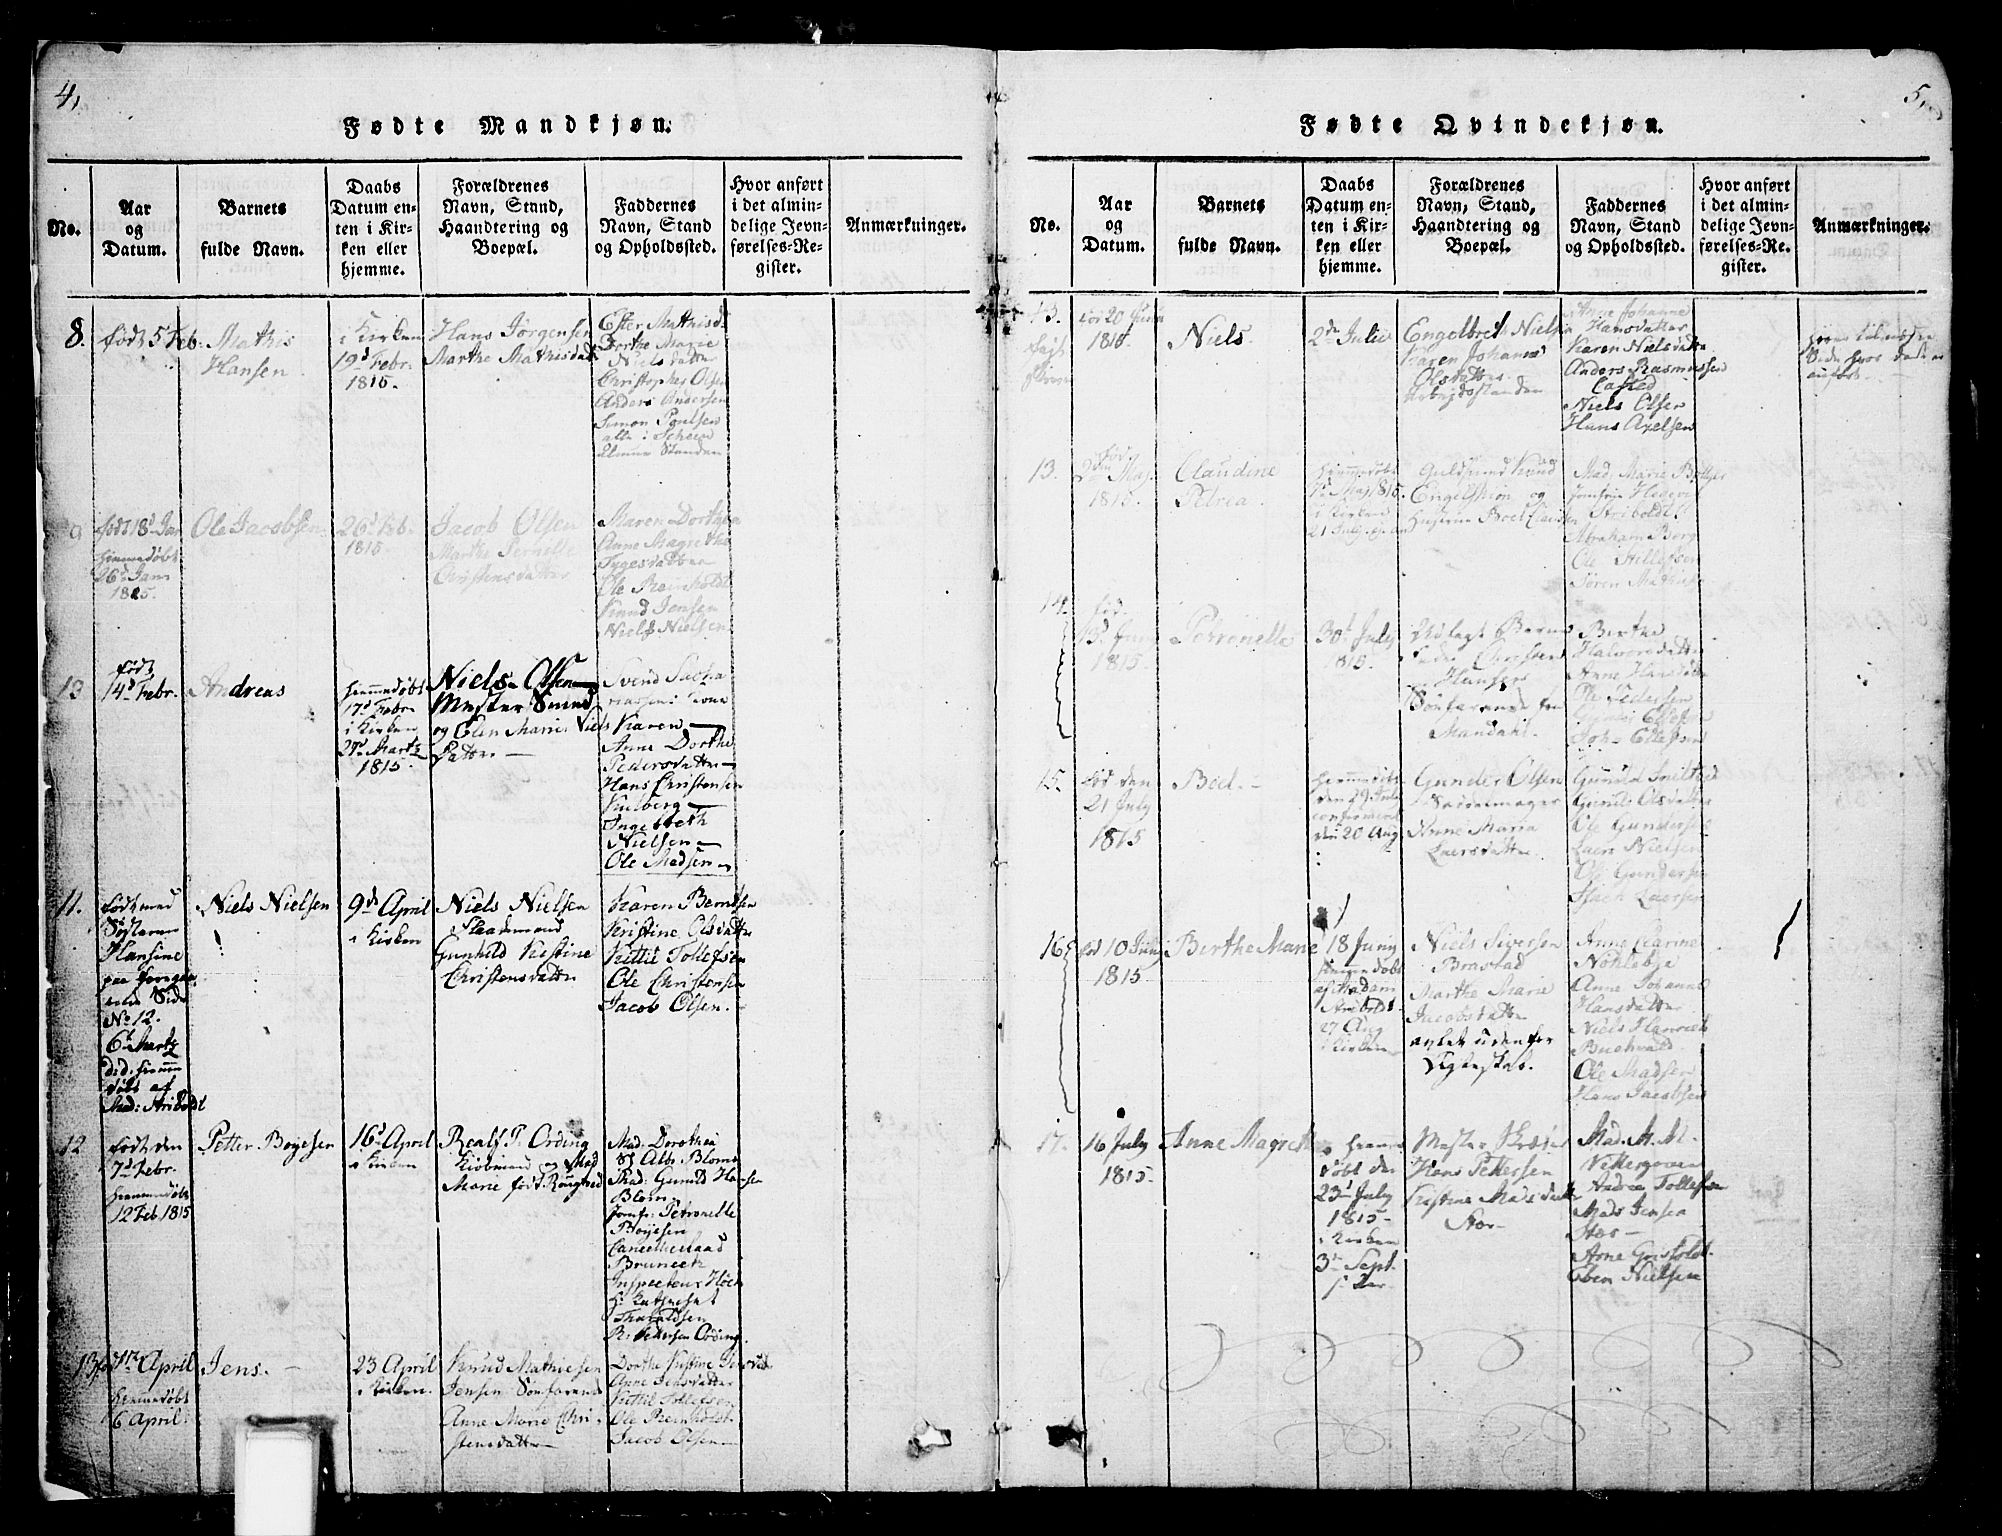 4,
Fødte Mandkjøn.
No.
Aar
og
Datum.
Barnets
fulde Navn.
Daabs
Datum en-
ten i Kir-
ken eller
hjemme.
Forældrenes
Navn, Stand,
Haandtering og
Boepæl.
Faddernes
Navn, Stand
og Opholdssted.
Hvor anført
i det almin-
delige Jevn-
førelses-Re-
gister.
Anmærkninger.
8.
født 5 Feb.
Mathis
Hansen.
i Kirken
19d Febr.
1815.
Hans Jørgensen
Marthe Mathisdatt
Ester Mathisd.
Dorthe Marie
Nielsdatter
Christopher Olsen
Anders Andersen
Simon Poulsen
alle i Scheen
Standen
9
født 18d Jan
hiemmedøbt
26d Jan
1815.
Ole Jacobsen.
26d Feb.
1815
Jacob Olsen
Marthe Pernille
Christensdatter
Maren Dorthea
Anne Magrethe
Tygesdatter
Ole Reinholdt
Knud Jensen
Niels Nielsen
10
født
14d Febr.
Andreas
hiemmedøbt
17d Febr
i Kirken
29d Martz
1815.
Niels Olsen
Mester Smed
og Elen Marie Niels
datter —
Svend
Karen —
Anne Dorthe
Pedersdatter —
Hans Christensen
Kulberg —
Ingebreth
Nielsen —
Ole Madsen —
11.
født med
Søsteren
Hansine
paa foregaa-
ende Side
No 12.
6t Martz
did. hiemme
døbt af
Mad: Ariboldt
Niels Nielsen
9d April
i Kirken
Niels Nielsen
Gunhild Kistine
Christensdatter
Karen Berntsen
Kristine Olsdatter
Kittil Tollefsen
Ole Christensen
Jacob Olsen.
12
født den
7d Febr.
hiemmedøbt
12 Feb. 1815
Petter Boyesen
16d April
i Kirken
Realf P. Ording
Kiøbmand og Mad
Marie født Rougtved
Mad: Dorothea
Alb: Blom
Mad: Gunild Hansen
Blom
Jomfr: Petronelle
Boyesen
Cancellieraad
Bruneck
Inspecteur Høeck
Hr. Katechet
Tharaldsen
R: Pettersen Ording.
13
fød 1te April
hiemmedøbt
6 April.
Jens. —
23 April
i Kirken.
Knud Mathiesen
Jensen Søefarende
Anne Marie Chri-
stensdatter
Dorthe Kistine Jensd
Anne Jensdatter
Kittil Tollefsen
Ole Reinholdt
Jacob Olsen —
5,
Fødte Qvindekjøn.
No.
Aar
og
Datum.
Barnets
fulde Navn.
Daabs
Datum en-
ten i Kir-
ken eller
hjemme.
Forældrenes
Navn, Stand,
Haandtering og
Boepæl.
Faddernes
Navn, Stand
og Opholdssted.
Hvor anført
i det almin-
delige Jevn-
førelses-Re-
gister.
Anmærkninger.
13.
20 Juni
1815.
Niels
2de Julii
Engelbreth Nielsen
Karen Johanne
Olsdatter
Arbejdsstanden
Anne Johanne
Hansdatter
Karen Nielsdatter
Anders Rasmussen
Casted
Niels Olsen
Hans Axelsen
Side hvor dette er
anført.
13.
fød
2den Maj.
1815.
Claudine
Petrea.
hiemmedøbt
7d Maj 1815.
i Kirken
21 July
Guldsmed Knud
Engelskiøn og
Hustrue
Mad. Marie Bøttger
Jomfrue
Ariboldt.
Abraham Borg
Ole Hellefsen
Søren Mathies
14.
fød.
13d Juny
1815.
Petronelle
30t July
1815.
Udlagt Barne
Fader Christen
Hansen
Søefarende fra
Mandahl.
Berthe
Halvorsdatter
Anne Hansdatter
Ole Pedersen
Ellefsen
Joh: Ellefsen
15.
fød den
21 July
1815
Boel. —
hiemmedøbt
den 29. July
confirmeret
den 20 Aug
Gunder Olsen
Saddelmager
Anne Maria
Laersdatter
Gunild
Gunild Olsdatter
Ole Gundersen
Laers Nielsen
Ole Gundersen
Isach Laersen
16
fød 10 Juny
1815
Berthe Marie
18 Juny
hiemmedøbt
af Madam
Ariboldt.
27 Aug
i Kirken —
Niels Siversen
Brastad
Marthe Marie
Jacobsdatter
avlet udenfor
Ægteskab.
Anne Carine
Nøhleby
Anne Johanne
Hansdatter
Niels
Buchvald.
Ole Madsen
Hans Jacobsen
17.
16 July
1815.
Anne Magrethe
hiemme
døbt den
23d July
1815 —
i Kirken
3d Sept.
Mester Skræder
Hans Pettersen
Kistine Madsdatter
Stoer —
Mad. M. M.
Vettergreen
Andrea Tollefsen
Mads Jensen
Stoer —
Arne
Eben Nielsen